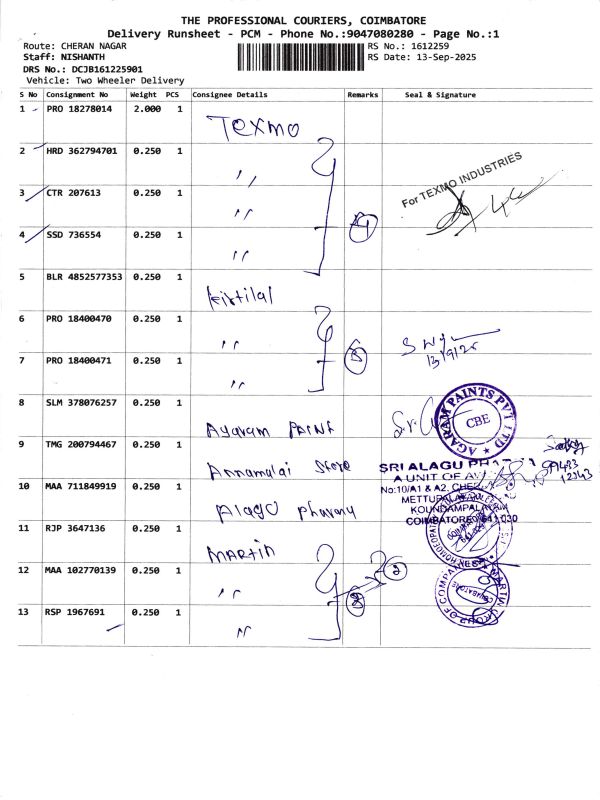 THE PROFESSIONAL COURIERS, COIMBATORE
Delivery Runsheet - PCM - Phone No.:9047080280 - Page No.:1
Route: CHERAN NAGAR RS No.: 1612259
Staff: NISHANTH RS Date: 13-Sep-2025
DRS No.: DCJB161225901
Vehicle: Two Wheeler Delivery
S No Consignment No Weight PCS Consignee Details Remarks Seal & Signature
1 PRO 18278014 2.000 1 Texmo
2 HRD 362794701 0.250 1 "
For TEXMO INDUSTRIES
3 CTR 207613 0.250 1 "
4
4 SSD 736554 0.250 1 "
5 BLR 4852577353 0.250 1 kirtilal
6 PRO 18400470 0.250 1 "
13/9/25
7 PRO 18400471 0.250 1 " 3
8 SLM 378076257 0.250 1 Agaram PAINT
AGARAM PAINTS PVT LTD
CBE
9 TMG 200794467 0.250 1 Annamalai Store
SRI ALAGU
A UNIT OF
No:10/A1 & A2,
10 MAA 711849919 0.250 1 Alago
METTUPALAYAM
KOUNDAMPALAYAM
COIMBATORE 641 030
11 RJP 3647136 0.250 1 MARTIN
12 MAA 102770139 0.250 1 " 2
MARTIN GROUP OF COMPANIES
COIMBATORE
13 RSP 1967691 0.250 1 "